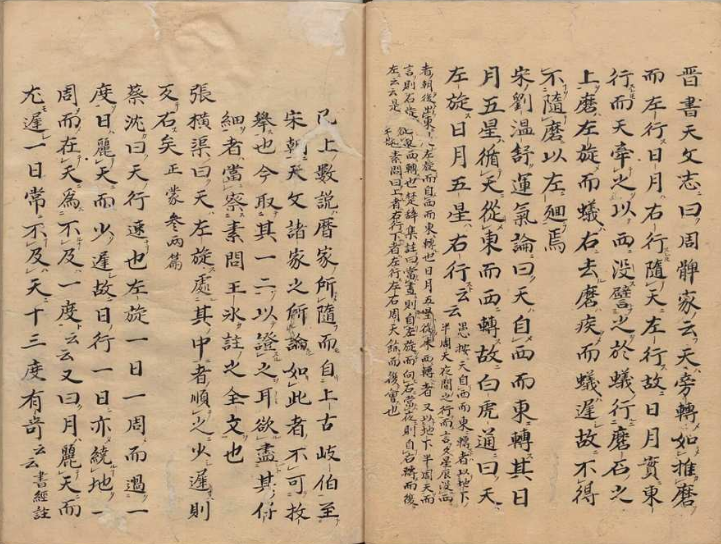 晋書天文志曰周髀家云天旁轉如推磨
而左行日月右行隨天左行故日月實東
行而天牽之以西没譬之於蟻行磨石之
上磨左旋而蟻右去磨疾而蟻遲故不得
不隨磨以左廻焉
宋劉温舒運氣論曰天自西而東轉其日
月五星循天從東而西轉故白虎通曰天
左旋日月五星右行云云
愚按天自西而東轉者以地下
半周天夜間之行而言
又以地下半周天而
已上数説暦家所隨而自上古岐伯至
宋朝天文諸家之所論如此者不可枚
舉也今取其一二以證之耳欲盡其仔
細者當察素問王氷註之全文也
張横渠曰天左旋處其中者順之少遲則
反右矣 正蒙参兩篇
蔡沈曰天行速也左旋一日一周而過一
度日麗天而少遲故日行一日亦繞地一
周而在天為不及一度云云又曰月麗天而
尤遲一日常不及天十三度有奇云云 書經註